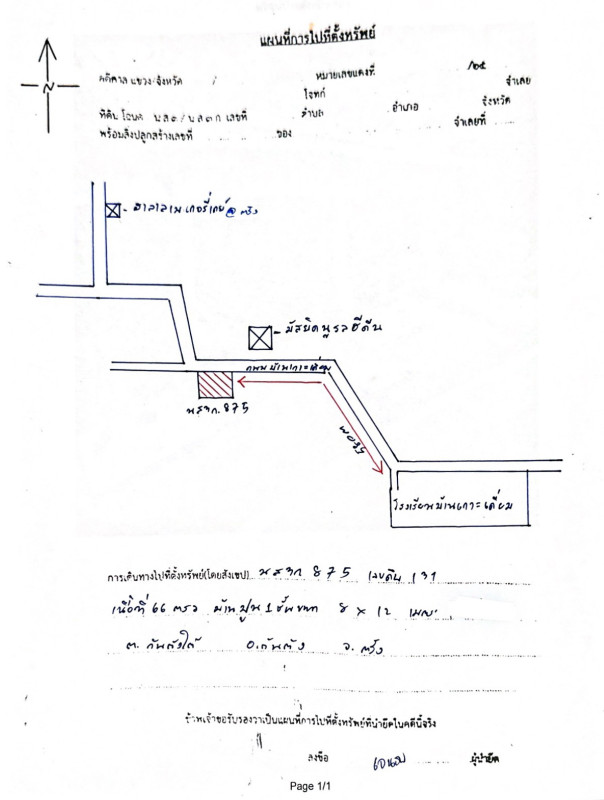 แผนที่การไปที่ตั้งทรัพย์
หมายเลขแดงที่ /๒๕
คดีศาล แขวง/จังหวัด / โจทก์ จำเลย
ที่ดิน โฉนด น.ส.๓ / น.ส.๓ ก. เลขที่ ตำบล อำเภอ จังหวัด
พร้อมสิ่งปลูกสร้างเลขที่ ของ จำเลยที่
N
@ ตรัง
มัสยิดนูรุลฮีดีน
ถนน บ้านเกาะเคี่ยม
นส3ก. 875
โรงเรียนบ้านเกาะเคี่ยม
การเดินทางไปที่ตั้งทรัพย์(โดยสังเขป) นส3ก 875 เลขดิน 131
เนื้อที่ 66 ตรว บ้านปูน 1 ชั้น ขนาด 8 x 12 เมตร
ต. กันตังใต้ อ. กันตัง จ. ตรัง
ข้าพเจ้าขอรับรองว่าเป็นแผนที่การไปที่ตั้งทรัพย์ที่นำยึดในคดีนี้จริง
ลงชื่อ ผู้นำยึด
Page 1/1